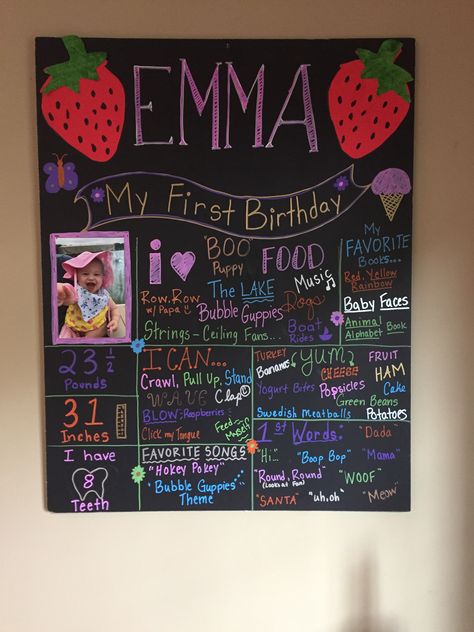 EMMA
My First Birthday
i
"BOO"
Puppy
FOOD
Music
Row, Row
w/ Papa
The LAKE
Bubble Guppies
Dogs
Strings - Ceiling Fans...
Boat
Rides
My
FAVORITE
Books...
Red, Yellow
Rainbow
Baby Faces
Animal
Alphabet Book
23 1/2
Pounds
31
Inches
I have
8
Teeth
I CAN...
Crawl, Pull Up, Stand
WAVE Clap
BLOW: Raspberries
Click my Tongue
Feed
Myself
FAVORITE SONGS
"Hokey Pokey"
"Bubble Guppies"
Theme
TURKEY
YUM
FRUIT
Bananas
CHEESE
HAM
Yogurt Bites
Popsicles
Cake
Green Beans
Swedish Meatballs
Potatoes
1st Words:
"Dada"
"Hi..."
"Boop Bop"
"Mama"
"Round, Round"
(Looks at Fan)
"WOOF"
"SANTA"
"uh,oh"
"Meow"